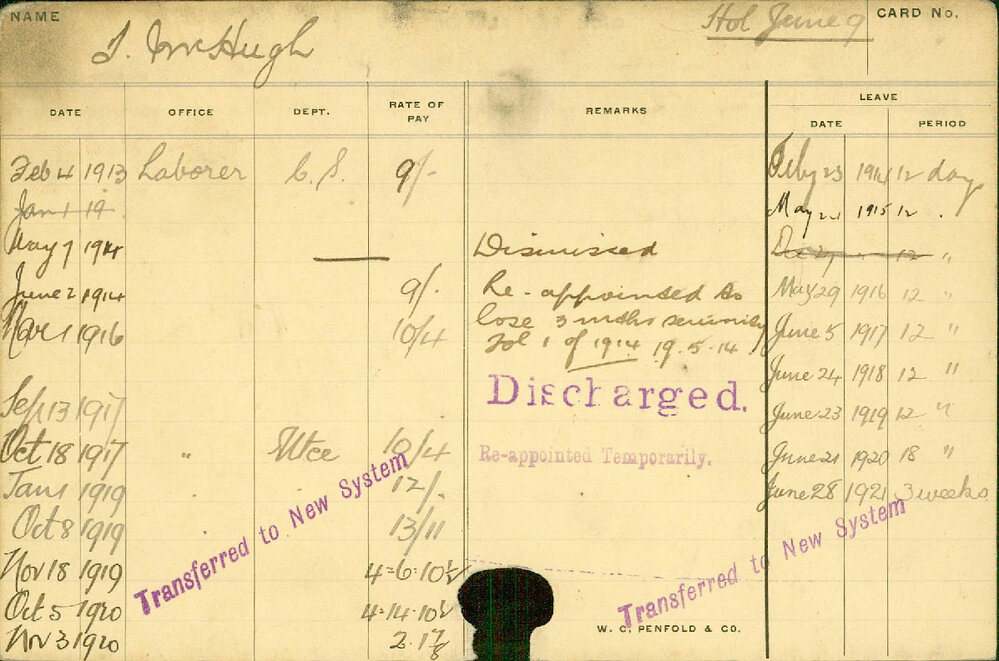 NAME
J. McHugh
Hol June 9
CARD No.
DATE OFFICE DEPT. RATE OF PAY REMARKS LEAVE
DATE PERIOD
Feb 4 1913 Laborer C. S. 9/-
Jan 1 19
May 7 1914 — Dismissed
June 2 1914 9/- Re-appointed to
lose 3 mths seniority
Mar 1 1916 10/4
Fol 1 of 1914 19.5.14
Discharged.
Sep 13 1917
Oct 18 1917 " Mtce 10/4 Re-appointed Temporarily.
Jan 1 1919 12/-
Oct 8 1919 13/11
Nov 18 1919 4=6=10½
Oct 5 1920 4=14=10½
Nov 3 1920
Feby 23 1914 12 days
May 1915 12 .
Dec 12 "
May 29 1916 12 "
June 5 1917 12 "
June 24 1918 12 "
June 23 1919 12 "
June 21 1920 18 "
June 28 1921 3 weeks
Transferred to New System
Transferred to New System
W. C. PENFOLD & CO.